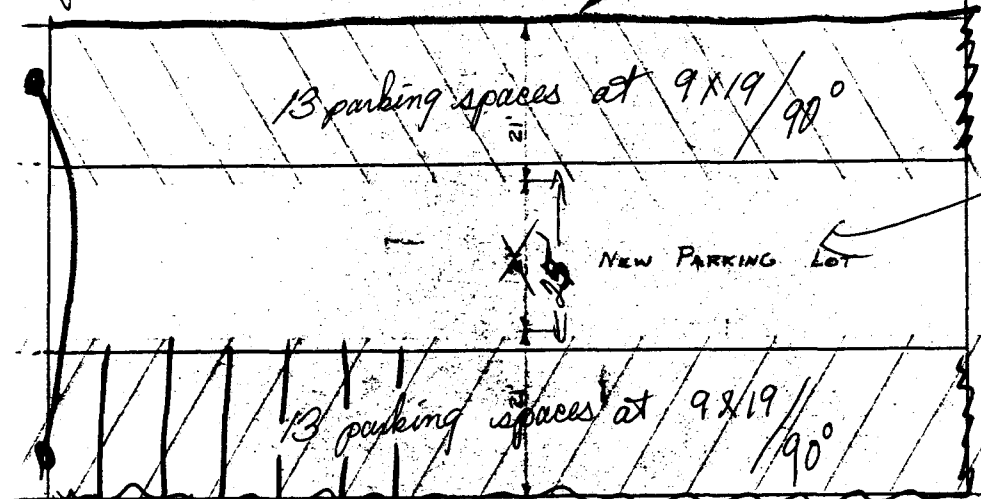 13 parking spaces at 9X19/90°
21'
25'
NEW PARKING LOT
21'
13 parking spaces at 9X19/90°